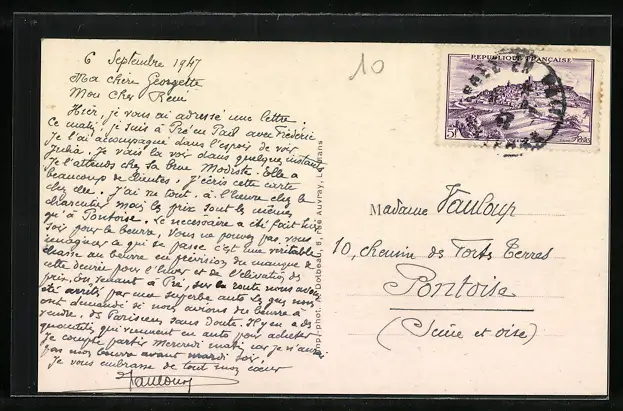 6 Septembre 1947
Ma chère Georgette
Mon cher René
Hier, je vous ai adressé une lettre.
Ce matin, je suis à Pré en Pail avec Frédéric
Je l'ai accompagné dans l'espoir de voir
Julia. Je vais la voir dans quelques instants
Je l'attends chez sa Modiste. Elle a
beaucoup de clientes. J'écris cette carte
chez elle. J'ai vu tout à l'heure chez le
charcutier mais les prix sont les mêmes
qu'à Pontoise. Le nécessaire a été fait hier
soir pour le beurre, vous ne pouvez pas vous
imaginer ce qui se passe c'est une véritable
chasse au beurre en prévision du manque de
cette denrée pour l'hiver et de l'élévation des
prix. En venant à Pré, sur la route nous avons
été arrêtés par une superbe auto les gens nous
ont demandé si nous avions du beurre à
vendre, des Parisiens sans doute. Il y en a des
quantités qui viennent en auto pour acheter
Je compte partir mercredi matin car je n'aurai
pas mon beurre avant mardi soir.
Je vous embrasse de tout mon cœur
Vauloup
Imp. phot. A. Dolbeau, 8, rue Auvray, Le Mans
10
REPUBLIQUE FRANÇAISE
5f
Madame Vauloup
10, chemin des Forts Terres
Pontoise
(Seine et Oise)